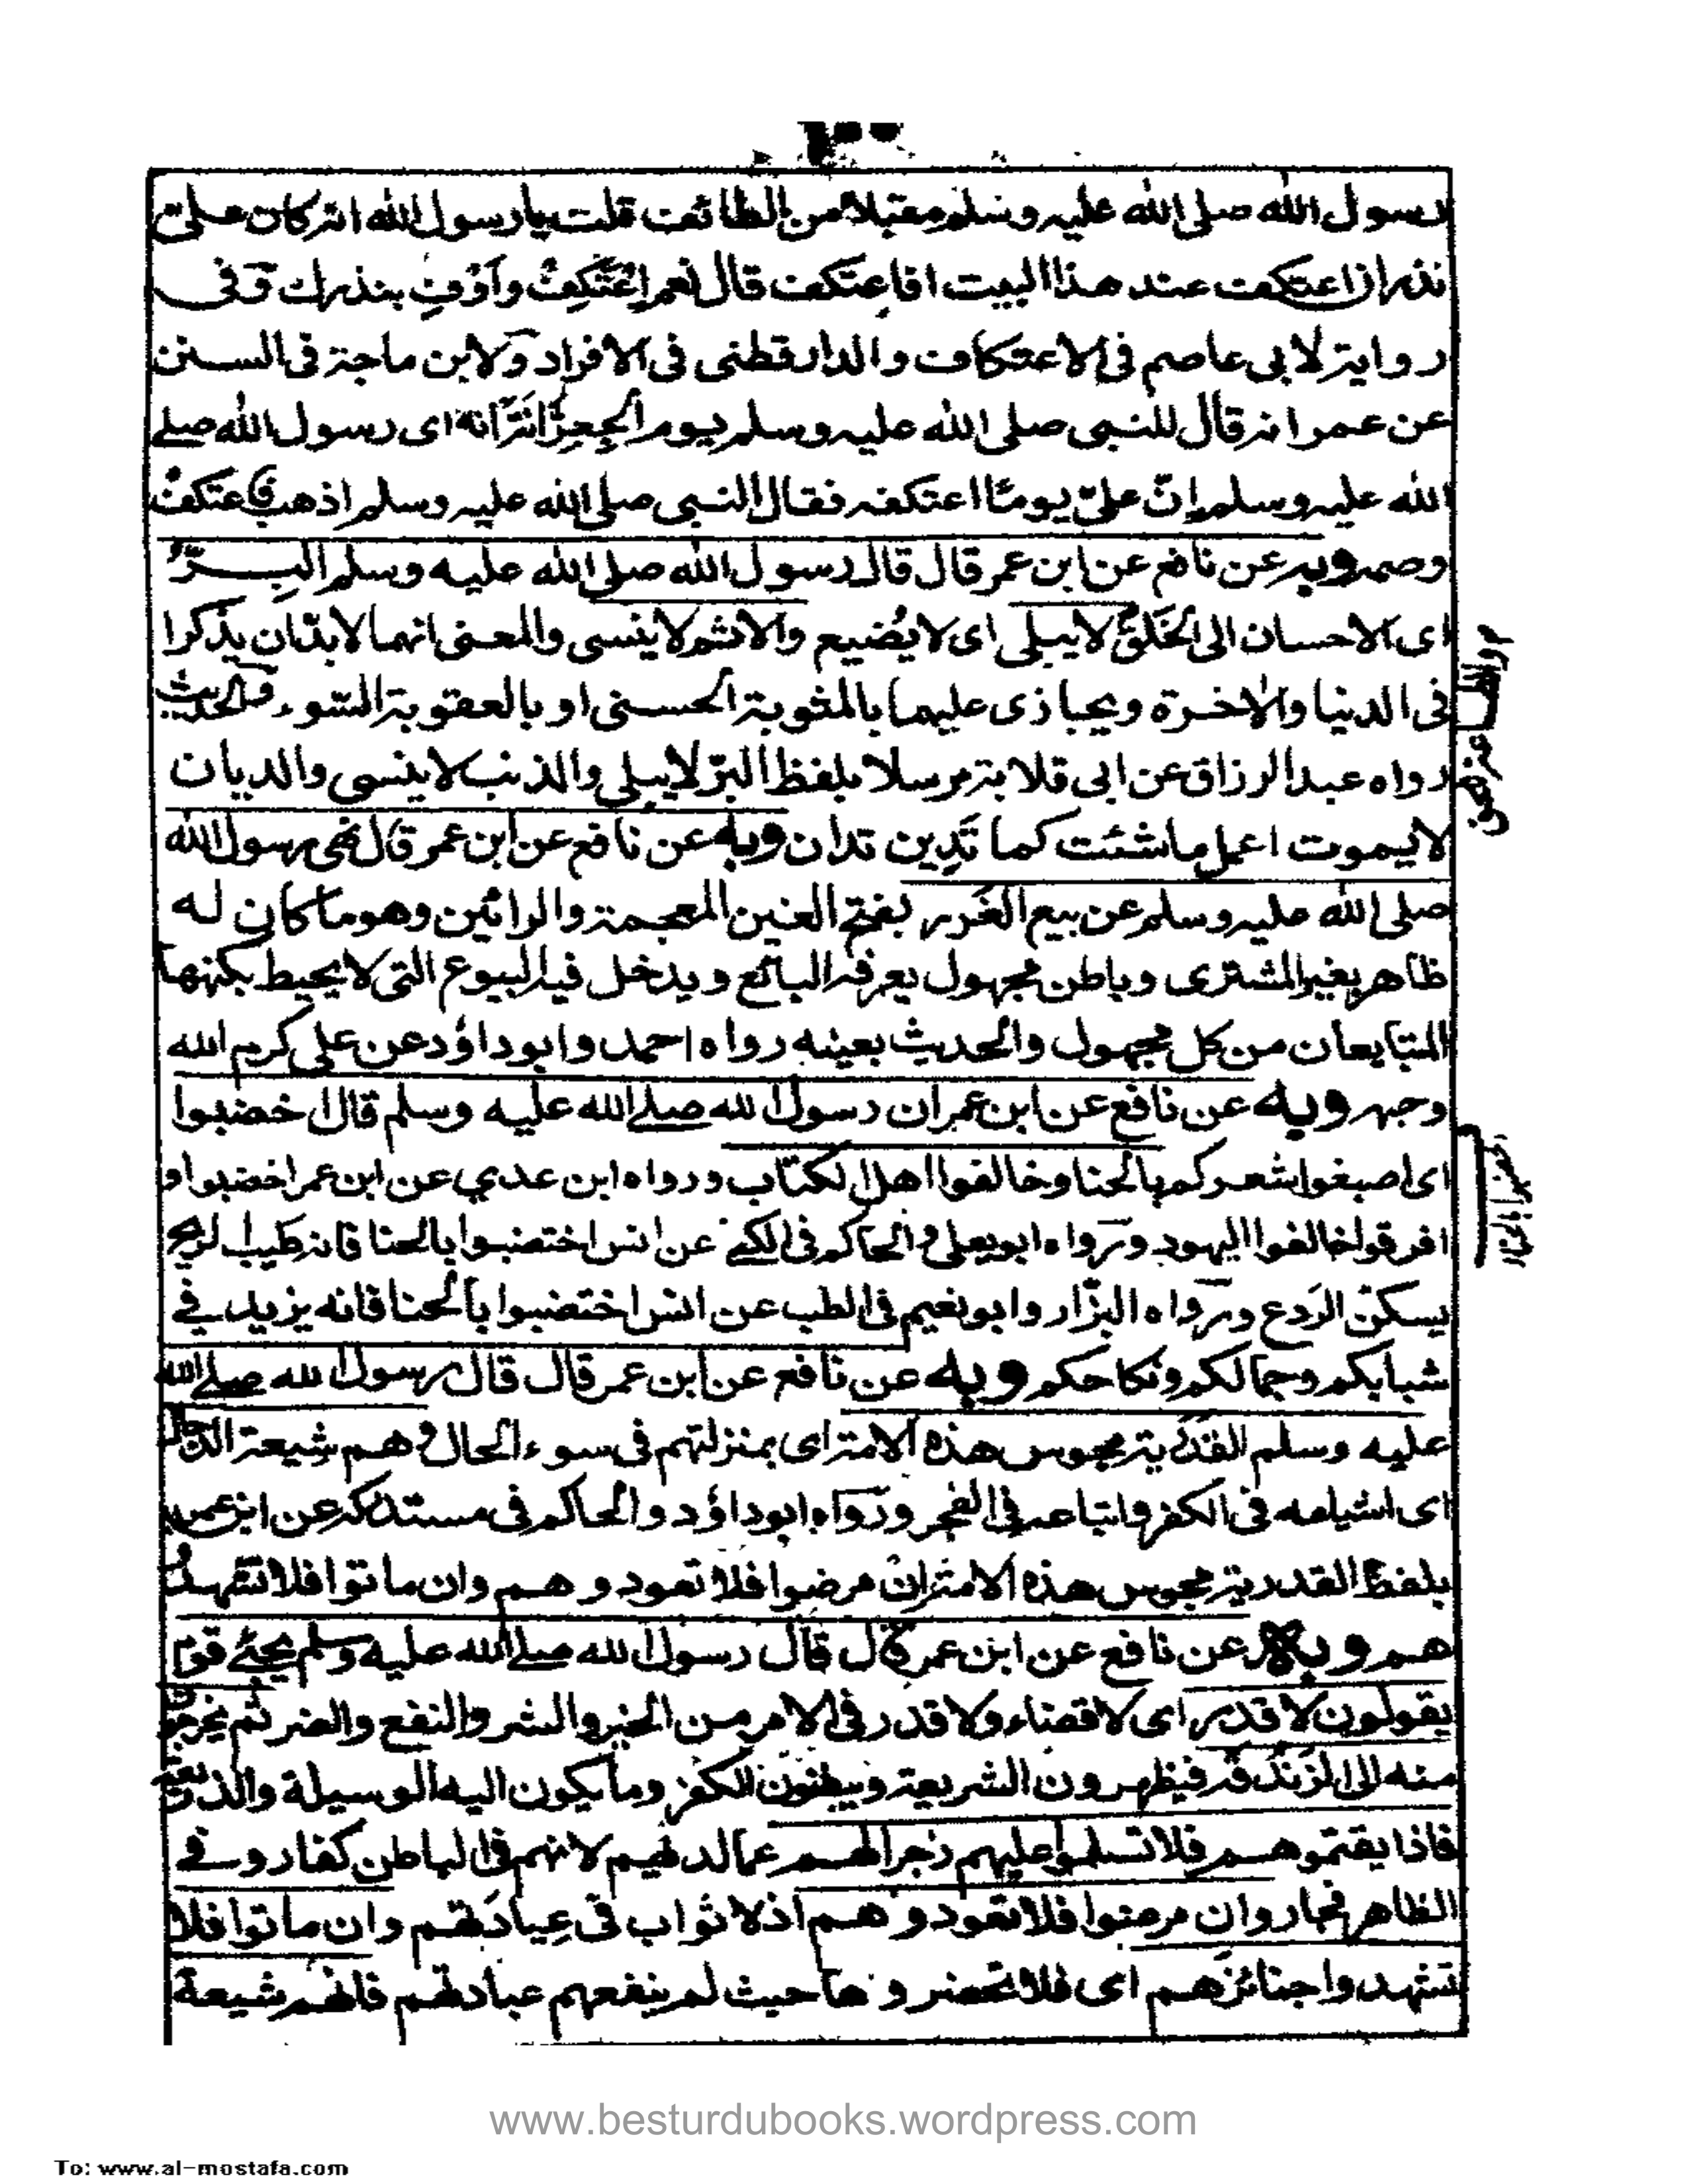 رسول الله صلى الله عليه وسلم مقبلا من الطائف قلت يا رسول الله انه كان على
نذر ان اعتكف عند هذا البيت افاعتكف قال نعم اِعْتَكِفْ وآوْفِ بنذرك وفى
رواية لابى عاصم فى الاعتكاف والدارقطنى فى الافراد ولابن ماجة فى السنن
عن عمر انه قال للنبى صلى الله عليه وسلم يوم الجعرّانة اى رسول الله صلے
الله عليه وسلم اِنّ علىّ يومًا اعتكفه فقال النبى صلى الله عليه وسلم اذهب فاعتكفْ
وصمه وبه عن نافع عن ابن عمر قال قال رسول الله صلى الله عليه وسلم البِــرُّ
اى الاحسان الى الخَلْق لا يبلى اى لا يُضيع والاثم لا ينسى والمعنى انهما لابدّ ان يذكرا
فى الدنيا والاخرة ويجازى عليهما بالمثوبة الحسنى او بالعقوبة السّوء والحديث
رواه عبد الرزاق عن ابى قلابة مرسلا بلفظ البرّ لا يبلى والذنب لا ينسى والديان
لا يموت اعمل ما شئت كما تَدِين تدان وبه عن نافع عن ابن عمر قال نهى رسول الله
صلى الله عليه وسلم عن بيع الغَرر بفتح الغين المعجمة والرائين وهو ما كان له
ظاهر يغير المشترى وباطن مجهول يعرفه البائع ويدخل فيه البيوع التى لا يحيط بكنهها
المتبايعان من كل مجهول والحديث بعينه رواه احمد وابوداؤد عن على كرم الله
وجهه وبه عن نافع عن ابن عمر ان رسول الله صلے الله عليه وسلم قال اخضبوا
اى اصبغوا شعركم بالحنا وخالفوا اهل الكتاب ورواه ابن عدي عن ابن عمر اخضبوا و
افرقوا خالفوا اليهود ورواه ابويعلى والحاكم فى الكنے عن انس اختضبوا بالحنا فانه طيب الريح
يسكن الرَوع ورواه البزّار وابونعيم فى الطب عن انس اختضبوا بالحنا فانه يزيد فے
شبابكم وجمالكم ونكاحكم وبه عن نافع عن ابن عمر قال قال رسول الله صلے الله
عليه وسلم القَدَرية مجوس هذه الامة اى بمنزلتهم فى سوء الحال وهم شيعة الدجال
اى اشياعه فى الكفر واتباعه فى الفجر ورواه ابوداؤد والحاكم فى مستدركه عن ابن عمر
بلفظ القدرية مجوس هذه الامة ان مرضوا فلا تعودوهم وان ماتوا فلا تشهدُ
هم وبه عن نافع عن ابن عمر قال قال رسول الله صلے الله عليه وسلم يجئ قوم
يقولون لا قدر اى لا قضاء ولا قدر فى الامر من الخير والشر والنفع والضر ثم يخرجون
منه الى الزندقة فيظهرون الشريعة ويبطنون الكفر وما يكون اليه الوسيلة والذريعة
فاذا لقيتموهم فلا تسلموا عليهم زجرا لهم عما لديهم لانهم فى الباطن كفار وفے
الظاهر فجار وان مرضوا فلا تعودوهم اذ لا ثواب فى عِيادَتهم وان ماتوا فلا
تشهدوا جنائزهم اى فلا تحضروها حيث لم ينفعهم عبادتهم فانهم شيعة
www.besturdubooks.wordpress.com
To: www.al-mostafa.com